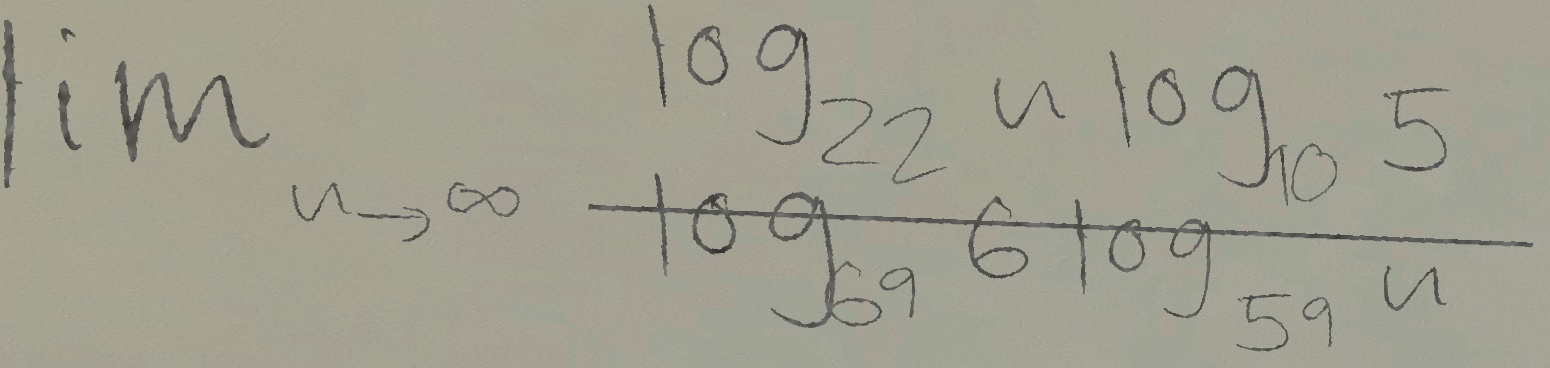 lim n→∞ log₂₂ n log₁₀ 5
log₆₉ 6 log₅₉ n